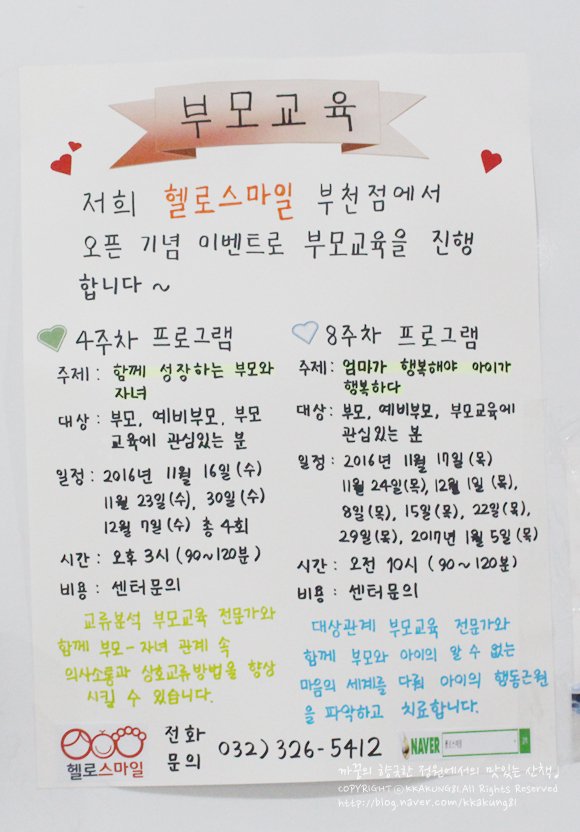 부모교육
저희 헬로스마일 부천점에서
오픈 기념 이벤트로 부모교육을 진행
합니다~
4주차 프로그램
주제: 함께 성장하는 부모와
자녀
대상: 부모, 예비부모, 부모
교육에 관심있는 분
일정: 2016년 11월 16일(수)
11월 23일(수), 30일(수)
12월 7일(수) 총 4회
시간: 오후 3시 (90~120분)
비용: 센터문의
교류분석 부모교육 전문가와
함께 부모-자녀 관계 속
의사소통과 상호교류방법을 향상
시킬 수 있습니다.
8주차 프로그램
주제: 엄마가 행복해야 아이가
행복하다
대상: 부모, 예비부모, 부모교육에
관심있는 분
일정: 2016년 11월 17일(목)
11월 24일(목), 12월 1일(목),
8일(목), 15일(목), 22일(목),
29일(목), 2017년 1월 5일(목)
시간: 오전 10시 (90~120분)
비용: 센터문의
대상관계 부모교육 전문가와
함께 부모와 아이의 알 수 없는
마음의 세계를 다뤄 아이의 행동근원
을 파악하고 치료합니다.
헬로스마일
전화
문의
032) 326-5412
NAVER
까꿍의 향긋한 정원에서의 맛있는 산책♩
COPYRIGHT ⓒ KKAKUNG81 All Rights Reserved
http://blog.naver.com/kkakung81